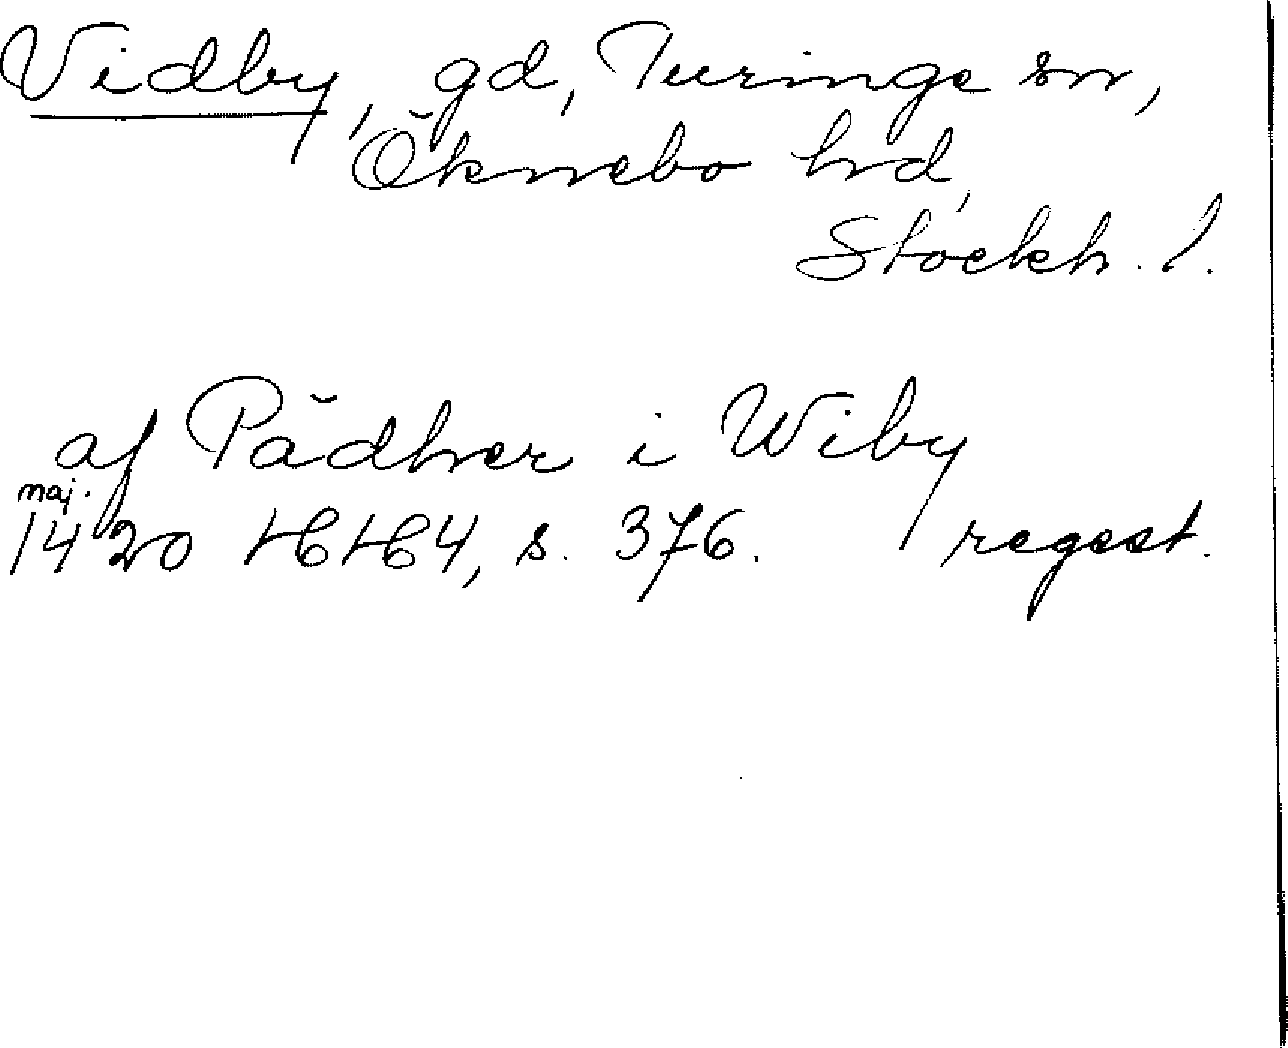 Vidby, gd, Turinge sn,
Öknebo hd,
Stockh. l.
af Pädher i Wiby
maj.
1420 HH4, s. 376. regest.